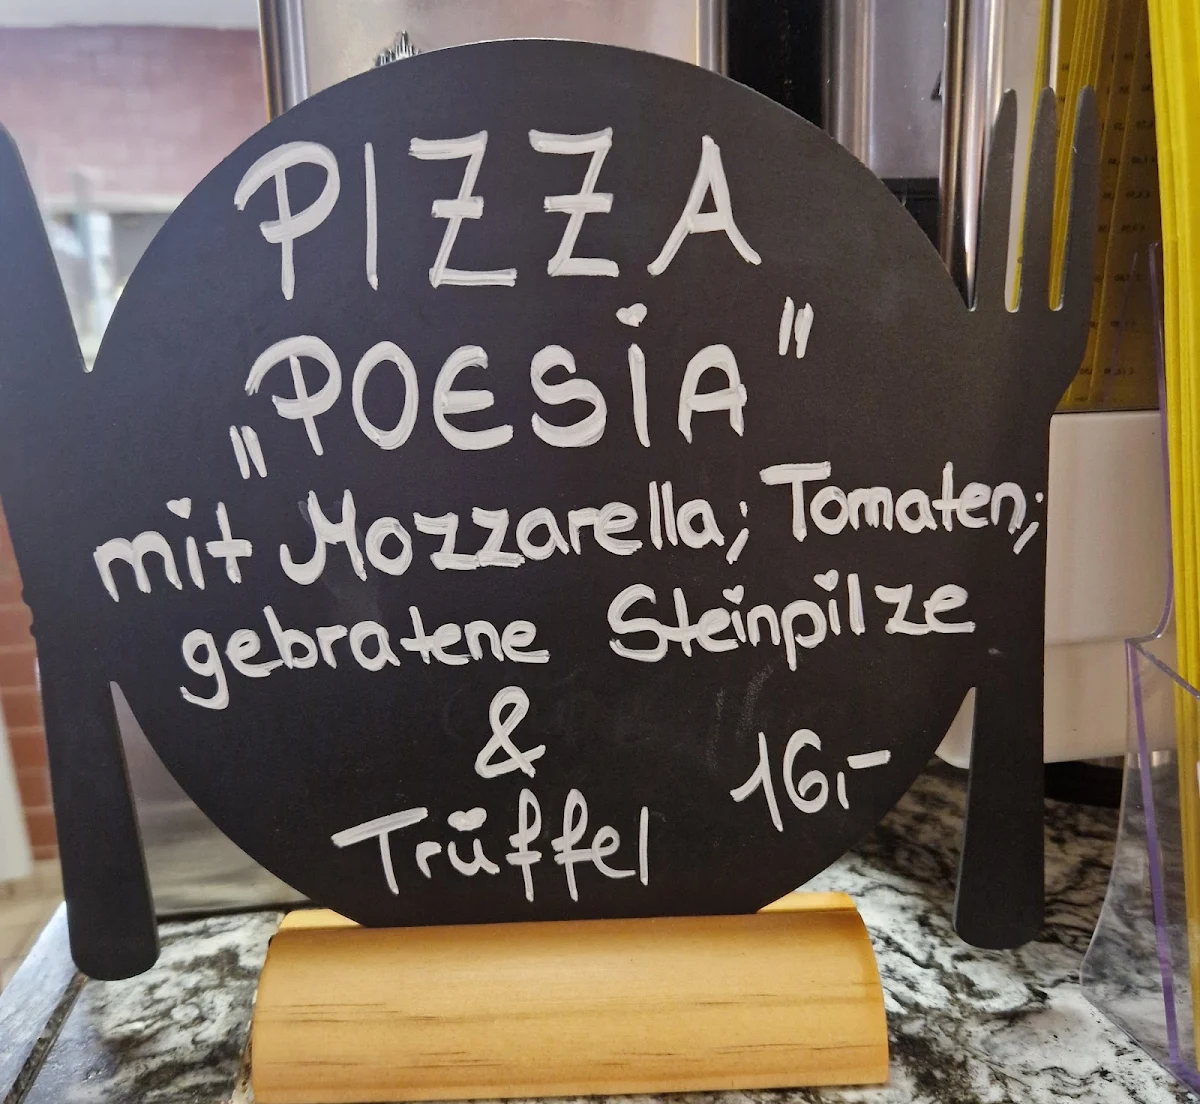 PIZZA
„POESiA"
mit Mozzarella; Tomaten;
gebratene Steinpilze
&
Trüffel 16,-